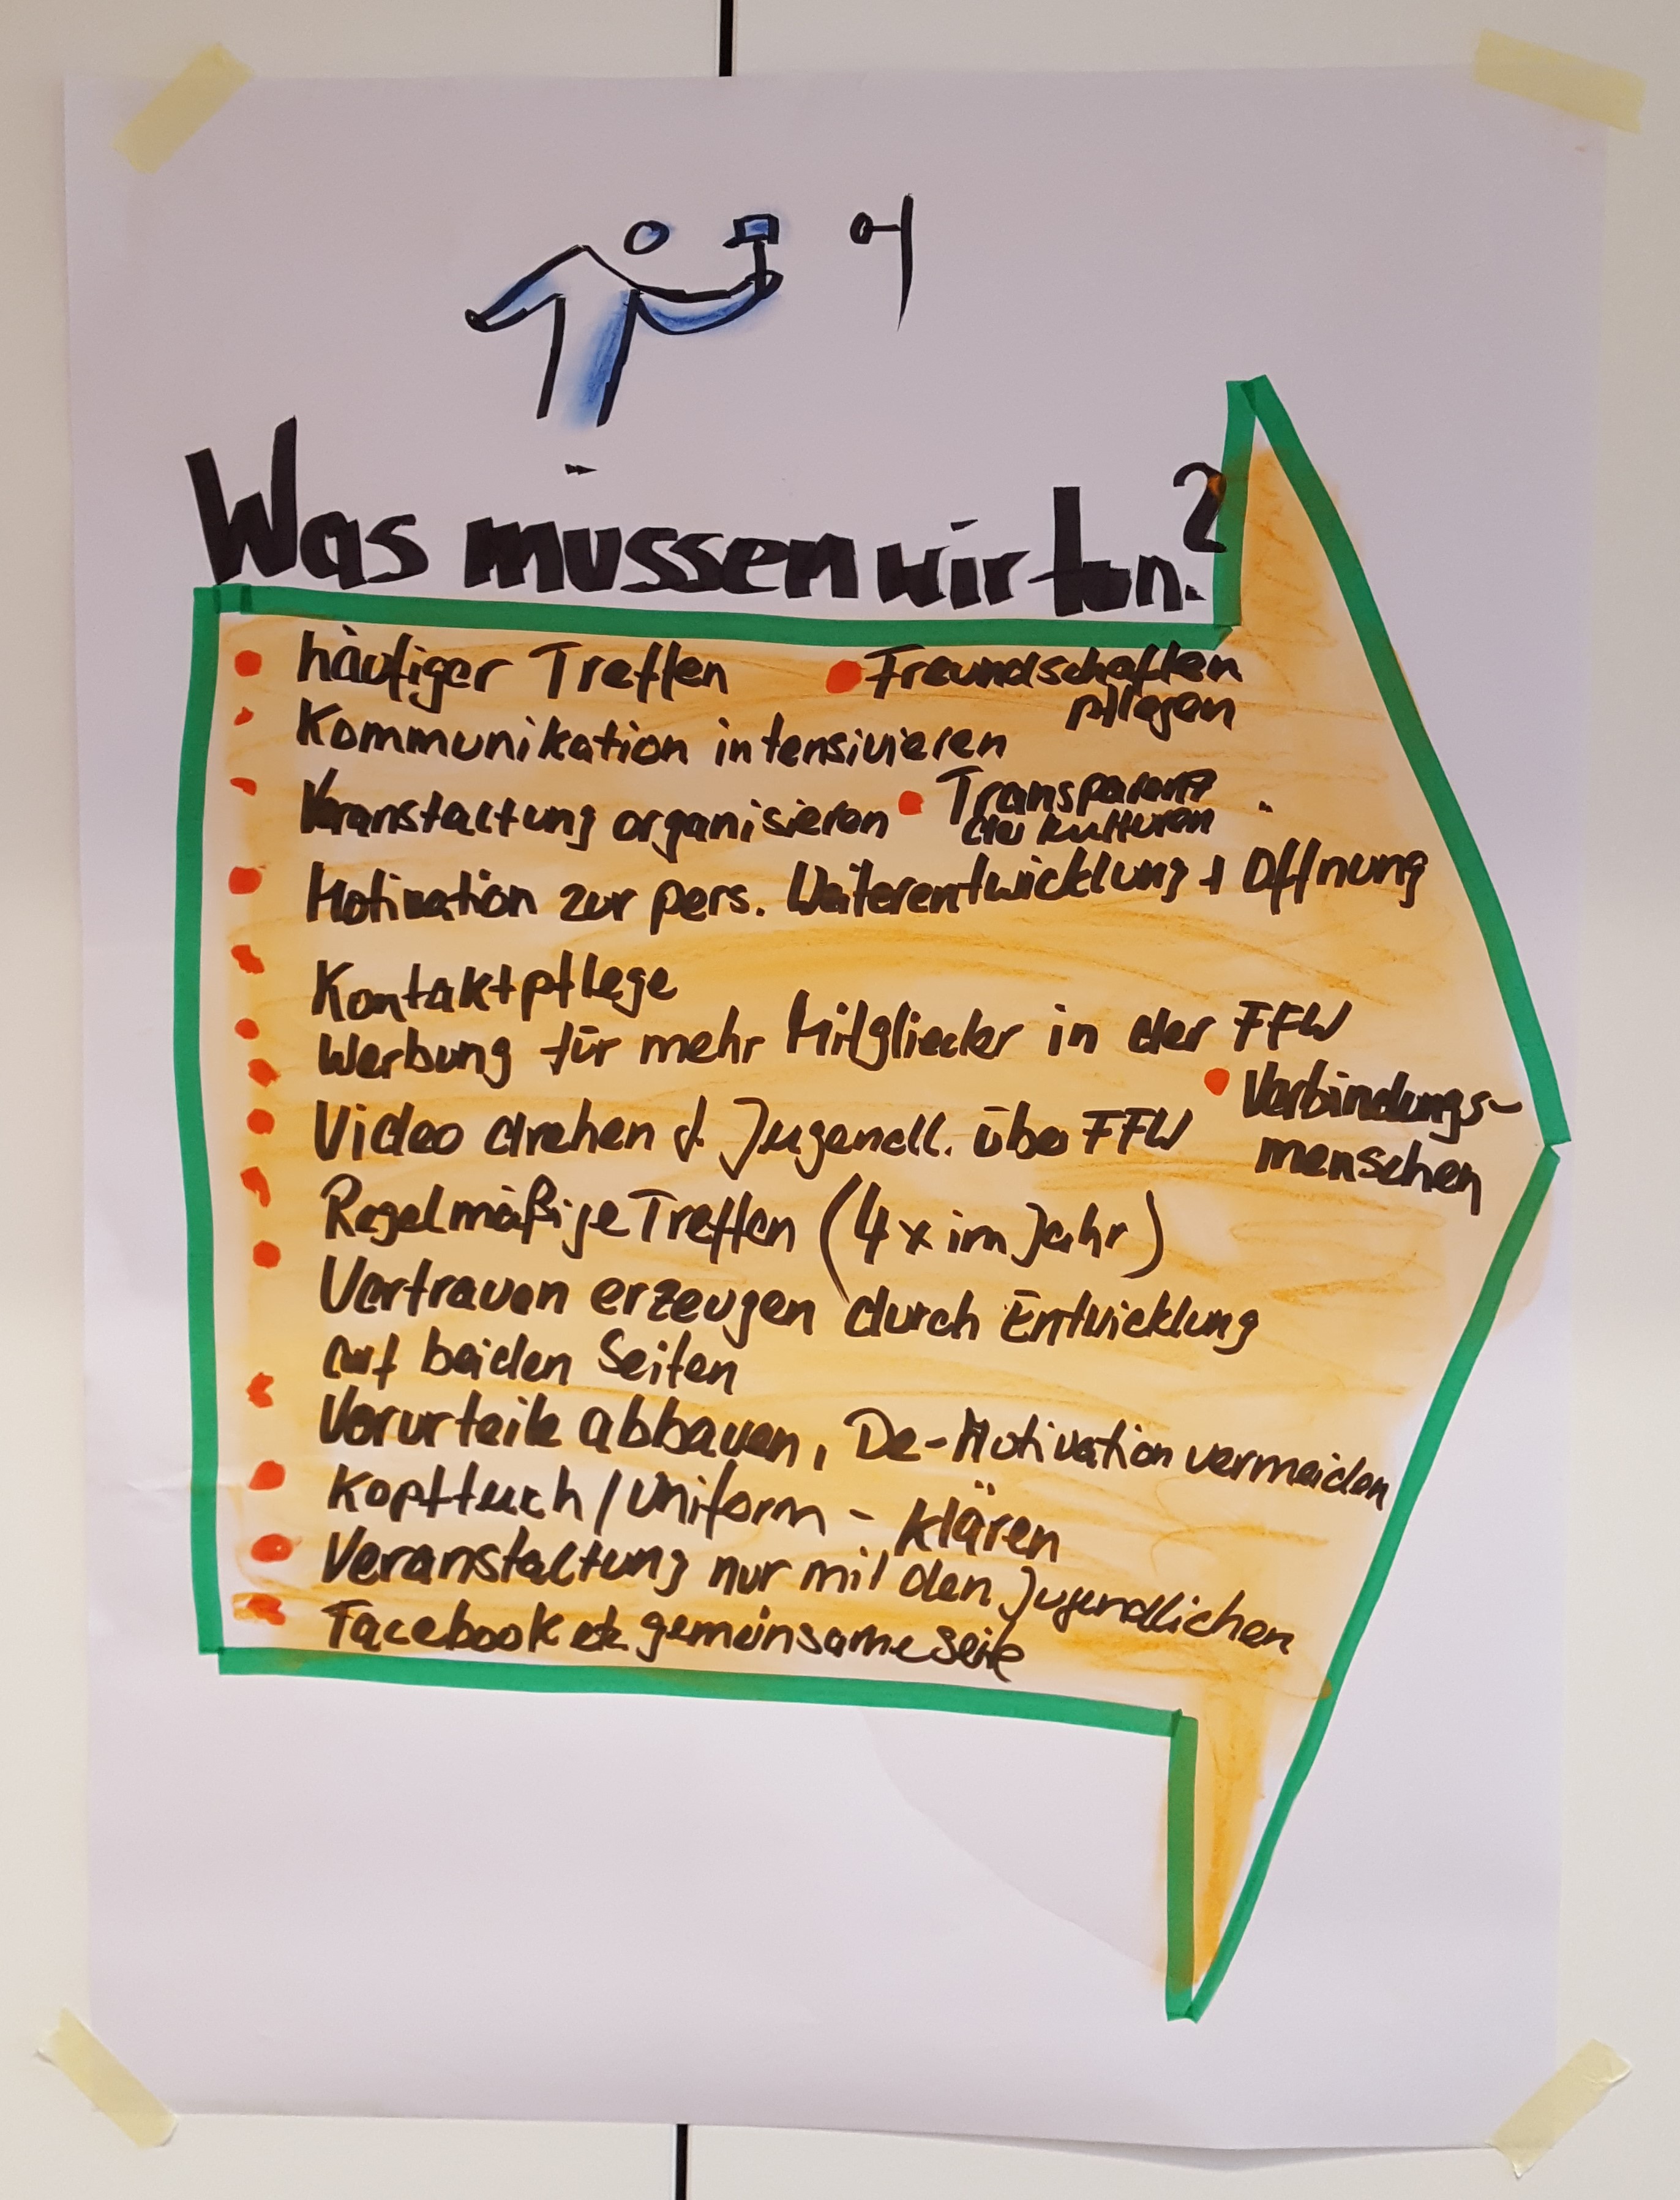 Was müssen wir tun?
häufiger Treffen
Freundschaften
pflegen
Kommunikation intensivieren
Veranstaltung organisieren
Transparenz
der Kulturen
Motivation zur pers. Weiterentwicklung + Öffnung
Kontaktpflege
Werbung für mehr Mitglieder in der FFW
Verbindungs-
menschen
Video drehen f. Jugendl. über FFW
Regelmäßige Treffen (4x im Jahr)
Vertrauen erzeugen durch Entwicklung
auf beiden Seiten
Vorurteile abbauen, De-Motivation vermeiden
Kopftuch/Uniform - klären
Veranstaltung nur mit den Jugendlichen
Facebook etc gemeinsame Seite